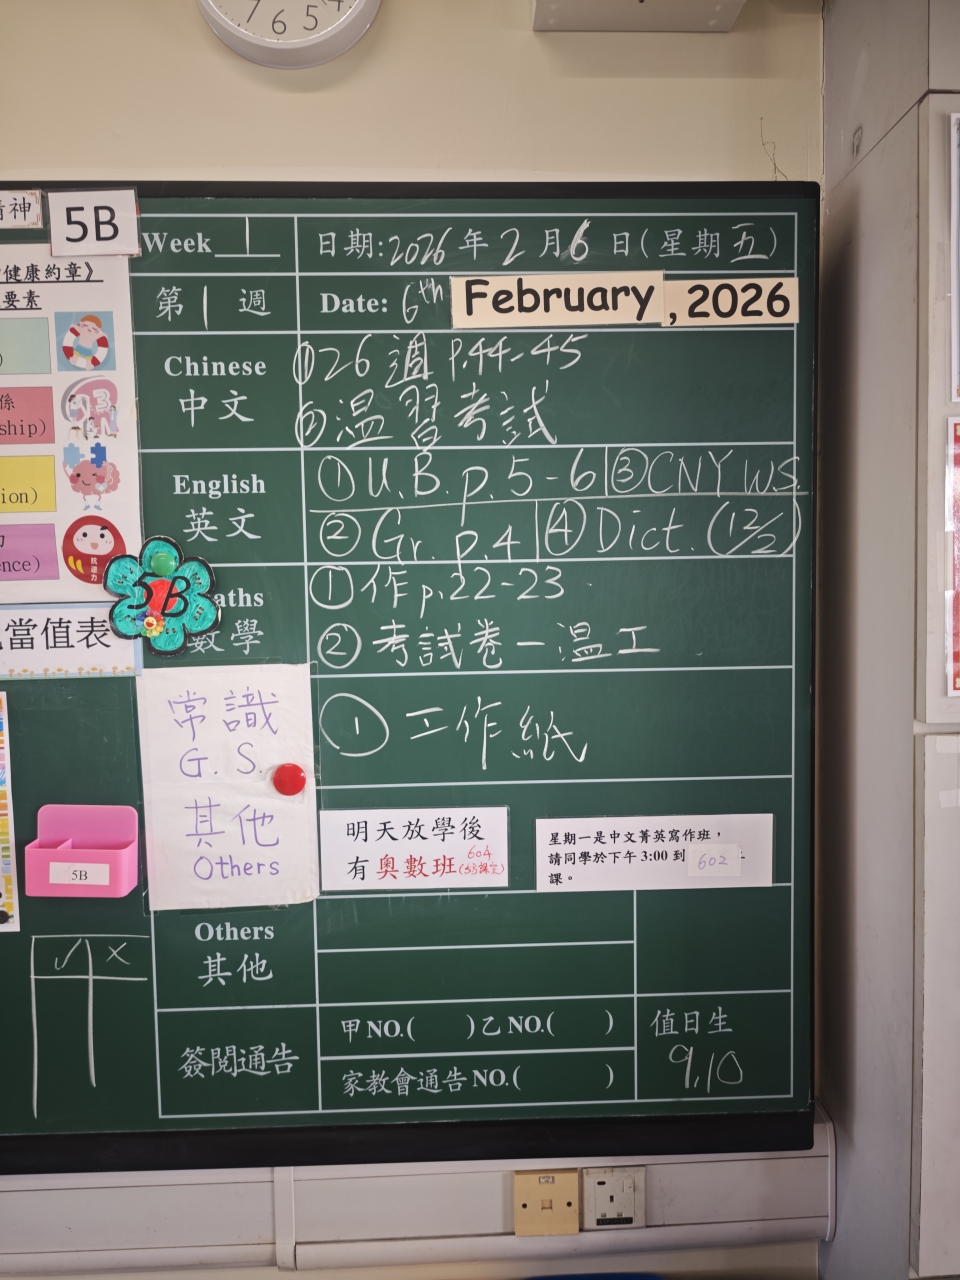 7 6 5 4
神
5B
健康約章》
要素
係
ship)
ion)
ence)
抗逆力
5B
當值表
Week 1 日期:2026年2月6日(星期五)
第1週 Date: 6th February, 2026
Chinese
中文
①26週 p.44-45
②温習考試
English
英文
①U.B. p.5-6 ③CNY W.S.
②Gr. p.4 ④Dict. (12/2)
aths
數學
①作p.22-23
②考試卷一温工
常識
G.S.
①工作紙
其他
Others
明天放學後
有奧數班 604 (5B課室)
星期一是中文菁英寫作班，
請同學於下午3:00到 602
課。
5B
✓ ×
Others
其他
簽閱通告
甲NO.( )乙NO.( )
家教會通告NO.( )
值日生
9,10